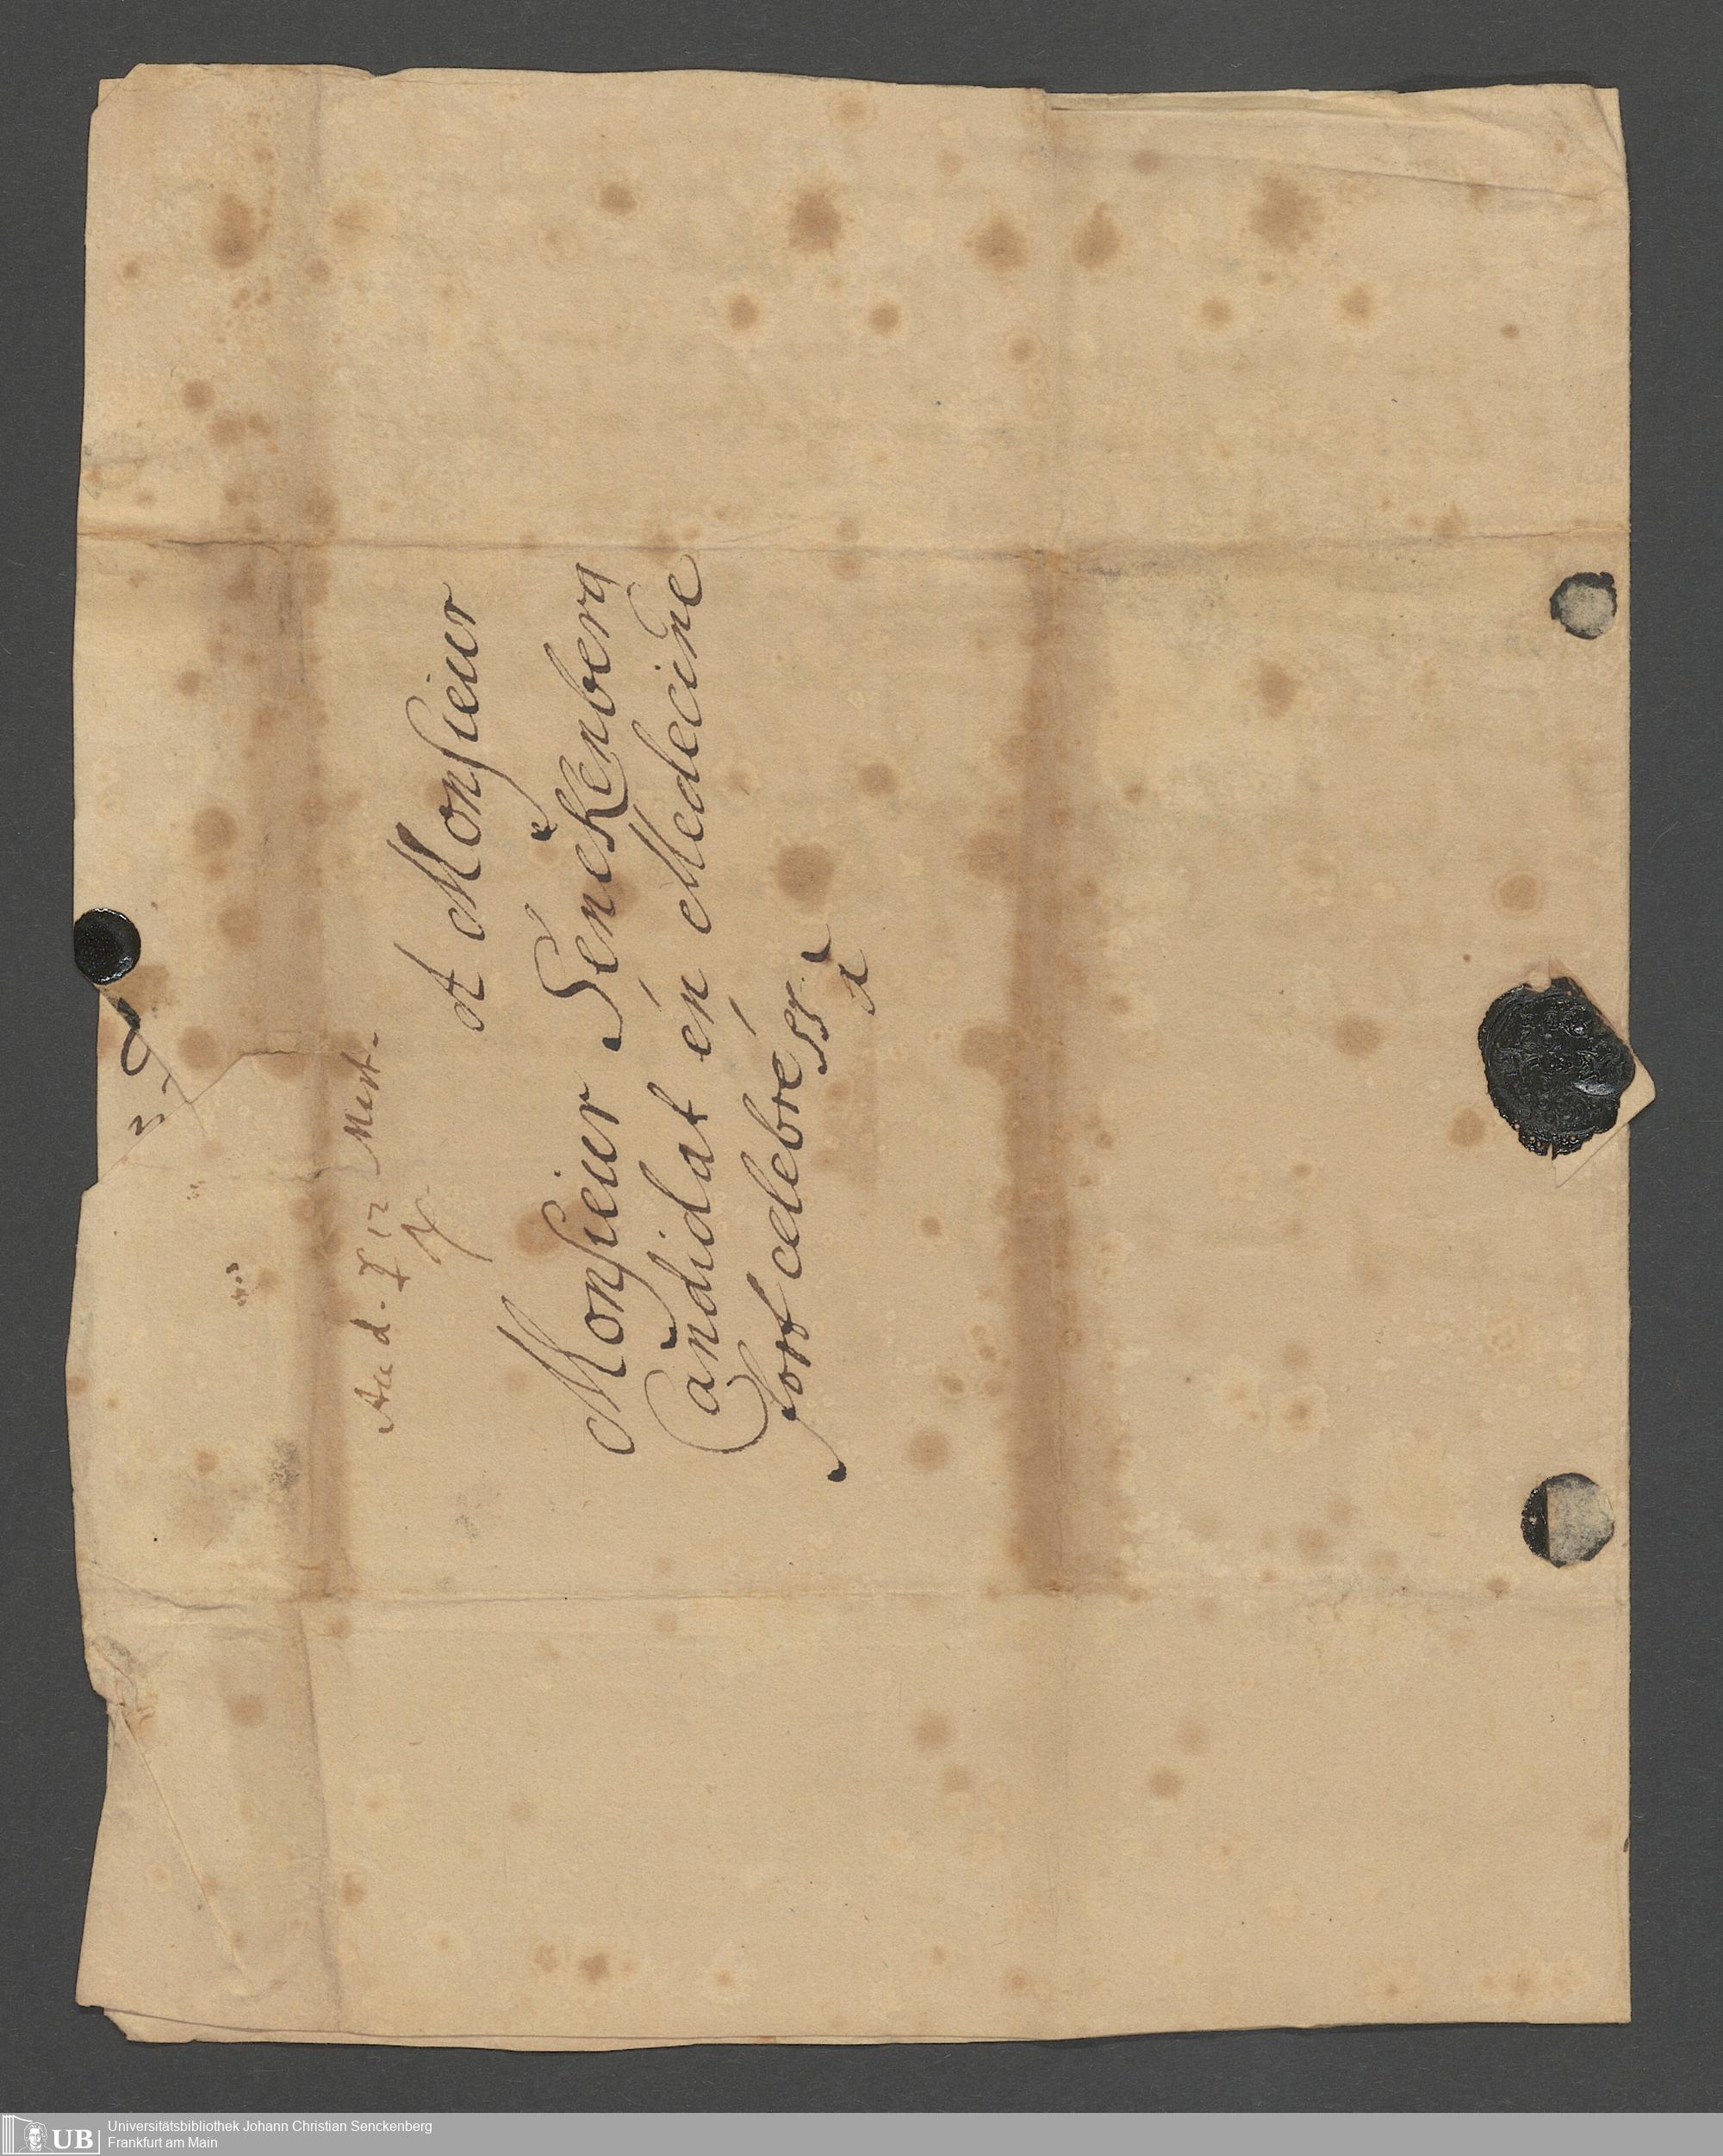 A Monsieur
Monsieur Senckenberg
Candidat en Medecine
fort celebre
a
Universitätsbibliothek Johann Christian Senckenberg
Frankfurt am Main
UB